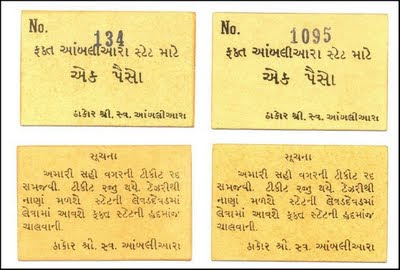 No. 134
ફક્ત આંબલીઆરા સ્ટેટ માટે
એક પૈસો
ઠાકોર શ્રી. સ્વ. આંબલીઆરા
No. 1095
ફક્ત આંબલીઆરા સ્ટેટ માટે
એક પૈસો
ઠાકોર શ્રી. સ્વ. આંબલીઆરા
સૂચના
અમારી સહી વગરની ટીકીટ રદ
સમજવી. ટીકીટ રજુ થયે. ટ્રેઝરીથી
નાણાં મળશે સ્ટેટની લેવડદેવડમાં
લેવામાં આવશે ફક્ત સ્ટેટની હદમાંજ
ચાલવાની.
ઠાકોર શ્રી. સ્વ. આંબલીઆરા
સૂચના
અમારી સહી વગરની ટીકીટ રદ
સમજવી. ટીકીટ રજુ થયે. ટ્રેઝરીથી
નાણાં મળશે સ્ટેટની લેવડદેવડમાં
લેવામાં આવશે ફક્ત સ્ટેટની હદમાંજ
ચાલવાની.
ઠાકોર શ્રી. સ્વ. આંબલીઆરા